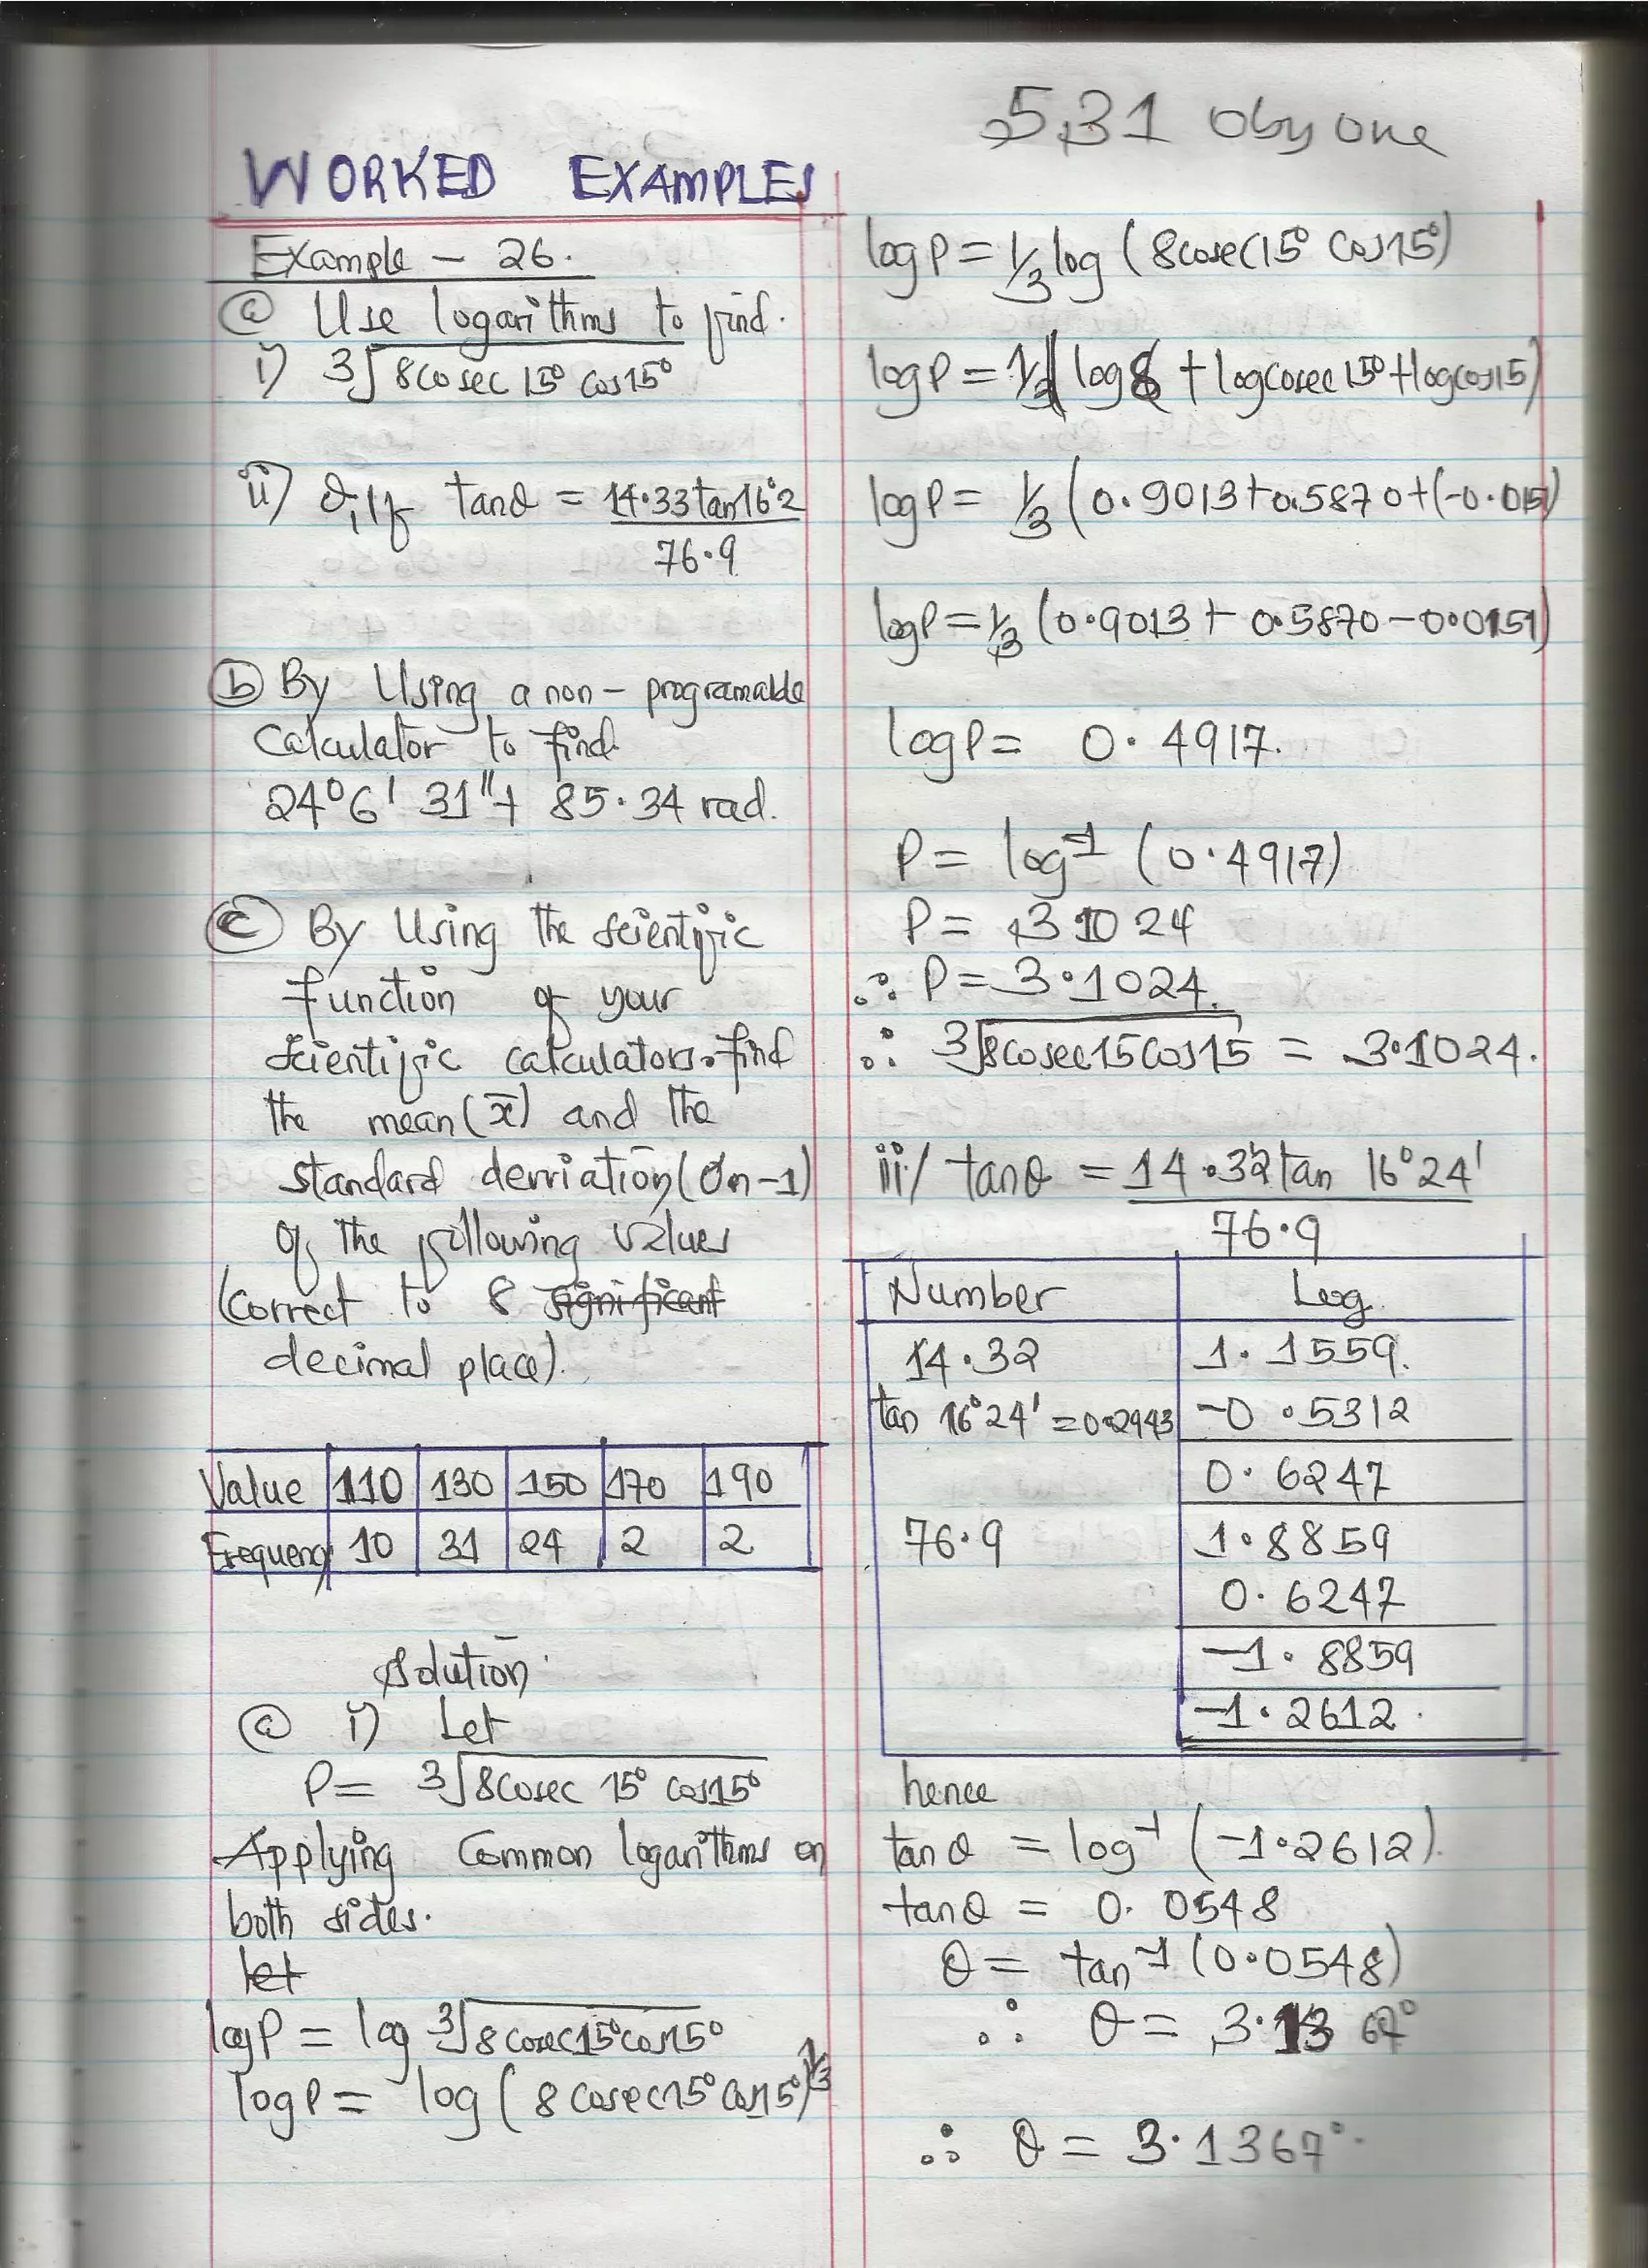 5.31 Oby one
WORKED EXAMPLES
Example - 26.
(a) Use logarithms to find.
i) 3√8cosec 15° cos15°
ii) θ, if tanθ = 14.33tan16°2
76.9
(b) By Using a non-programable
calculator to find
24°6' 31"+ 85.34 rad.
(c) By Using the scientific
function of your
scientific calculators find
the mean(x̄) and the
standard derviation(σn-1)
of the following values
(correct to 8 significant
decimal place).
Value 110 130 150 170 190
Frequency 10 31 24 2 2
Solution.
(a) i) Let
P= 3√8Cosec 15° cos15°
Applying Common logarithms on
both sides.
let
logP = log 3√8cosec15°cos15°
logP = log (8 Cosec15° Cos15°)⅓
logP = 1/3 log (8cosec15° Cos15°)
logP = 1/3 (log8 + logcosec15°+logcos15)
logP = 1/3 (0.9013+0.5870+(-0.0151)
logP = 1/3 (0.9013+ 0.5870-0.0151)
logP = 0.4917.
P = log-1 (0.4917)
P = 3.1024
∴ P = 3.1024.
∴ 3√8cosec15cos15 = 3.1024.
ii/ tanθ = 14.32tan 16°24'
76.9
Number Log.
14.32 1.1559.
tan 16°24' = 0.2943 -0.5312
0.6247
76.9 1.8859
0.6247
-1.8859
-1.2612.
hence
tanθ = log-1 (-1.2612).
tanθ = 0.0548
θ = tan-1 (0.0548)
∴ θ = 3.1367°
∴ θ = 3.1367°.